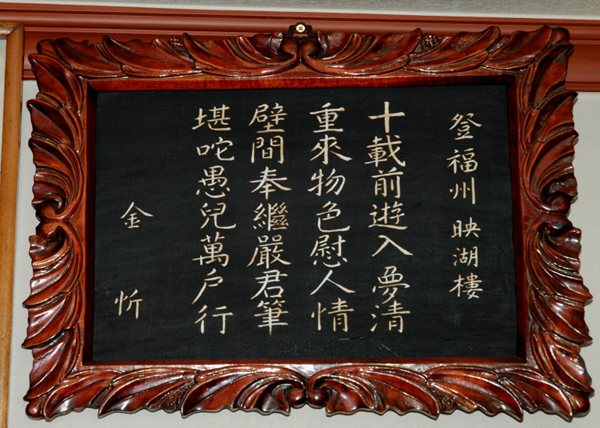 登福州映湖樓
十載前遊入夢清
重來物色慰人情
壁間奉繼嚴君筆
堪咤愚兒萬戶行
金忻